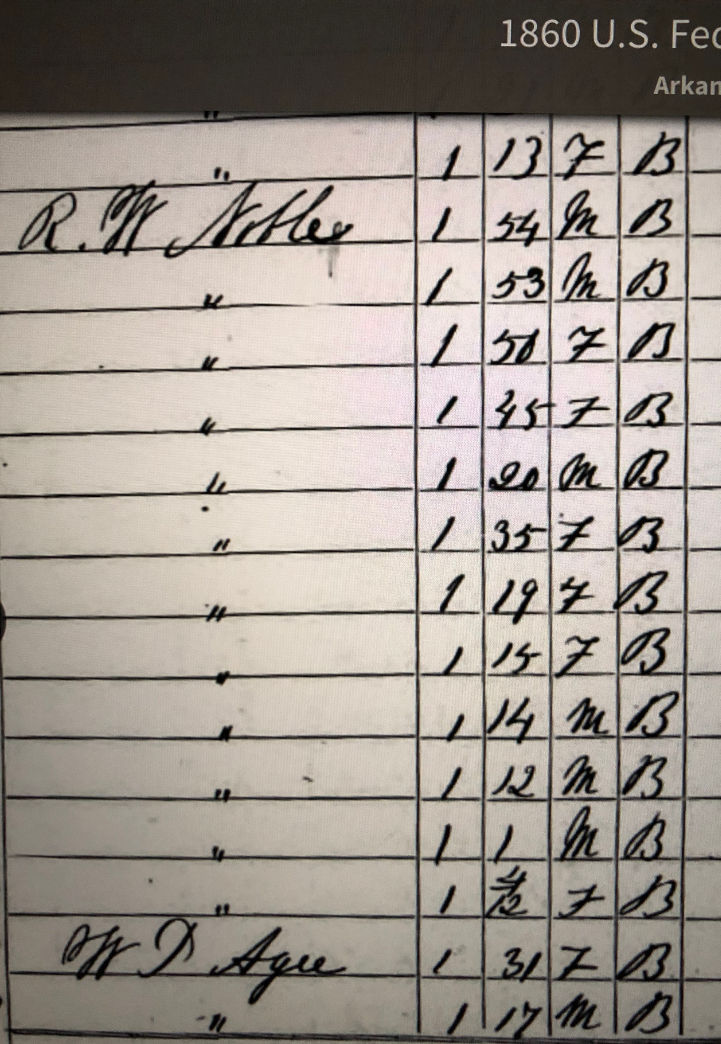 1860 U.S. Fed
Arkan
"
" 1 13 F B
R. W Nobles 1 54 M B
" 1 53 M B
" 1 50 F B
" 1 45 F B
" 1 20 M B
" 1 35 F B
" 1 19 F B
" 1 15 F B
" 1 14 M B
" 1 12 M B
" 1 1 M B
" 1 4/12 F B
W D Agee 1 31 F B
" 1 17 M B